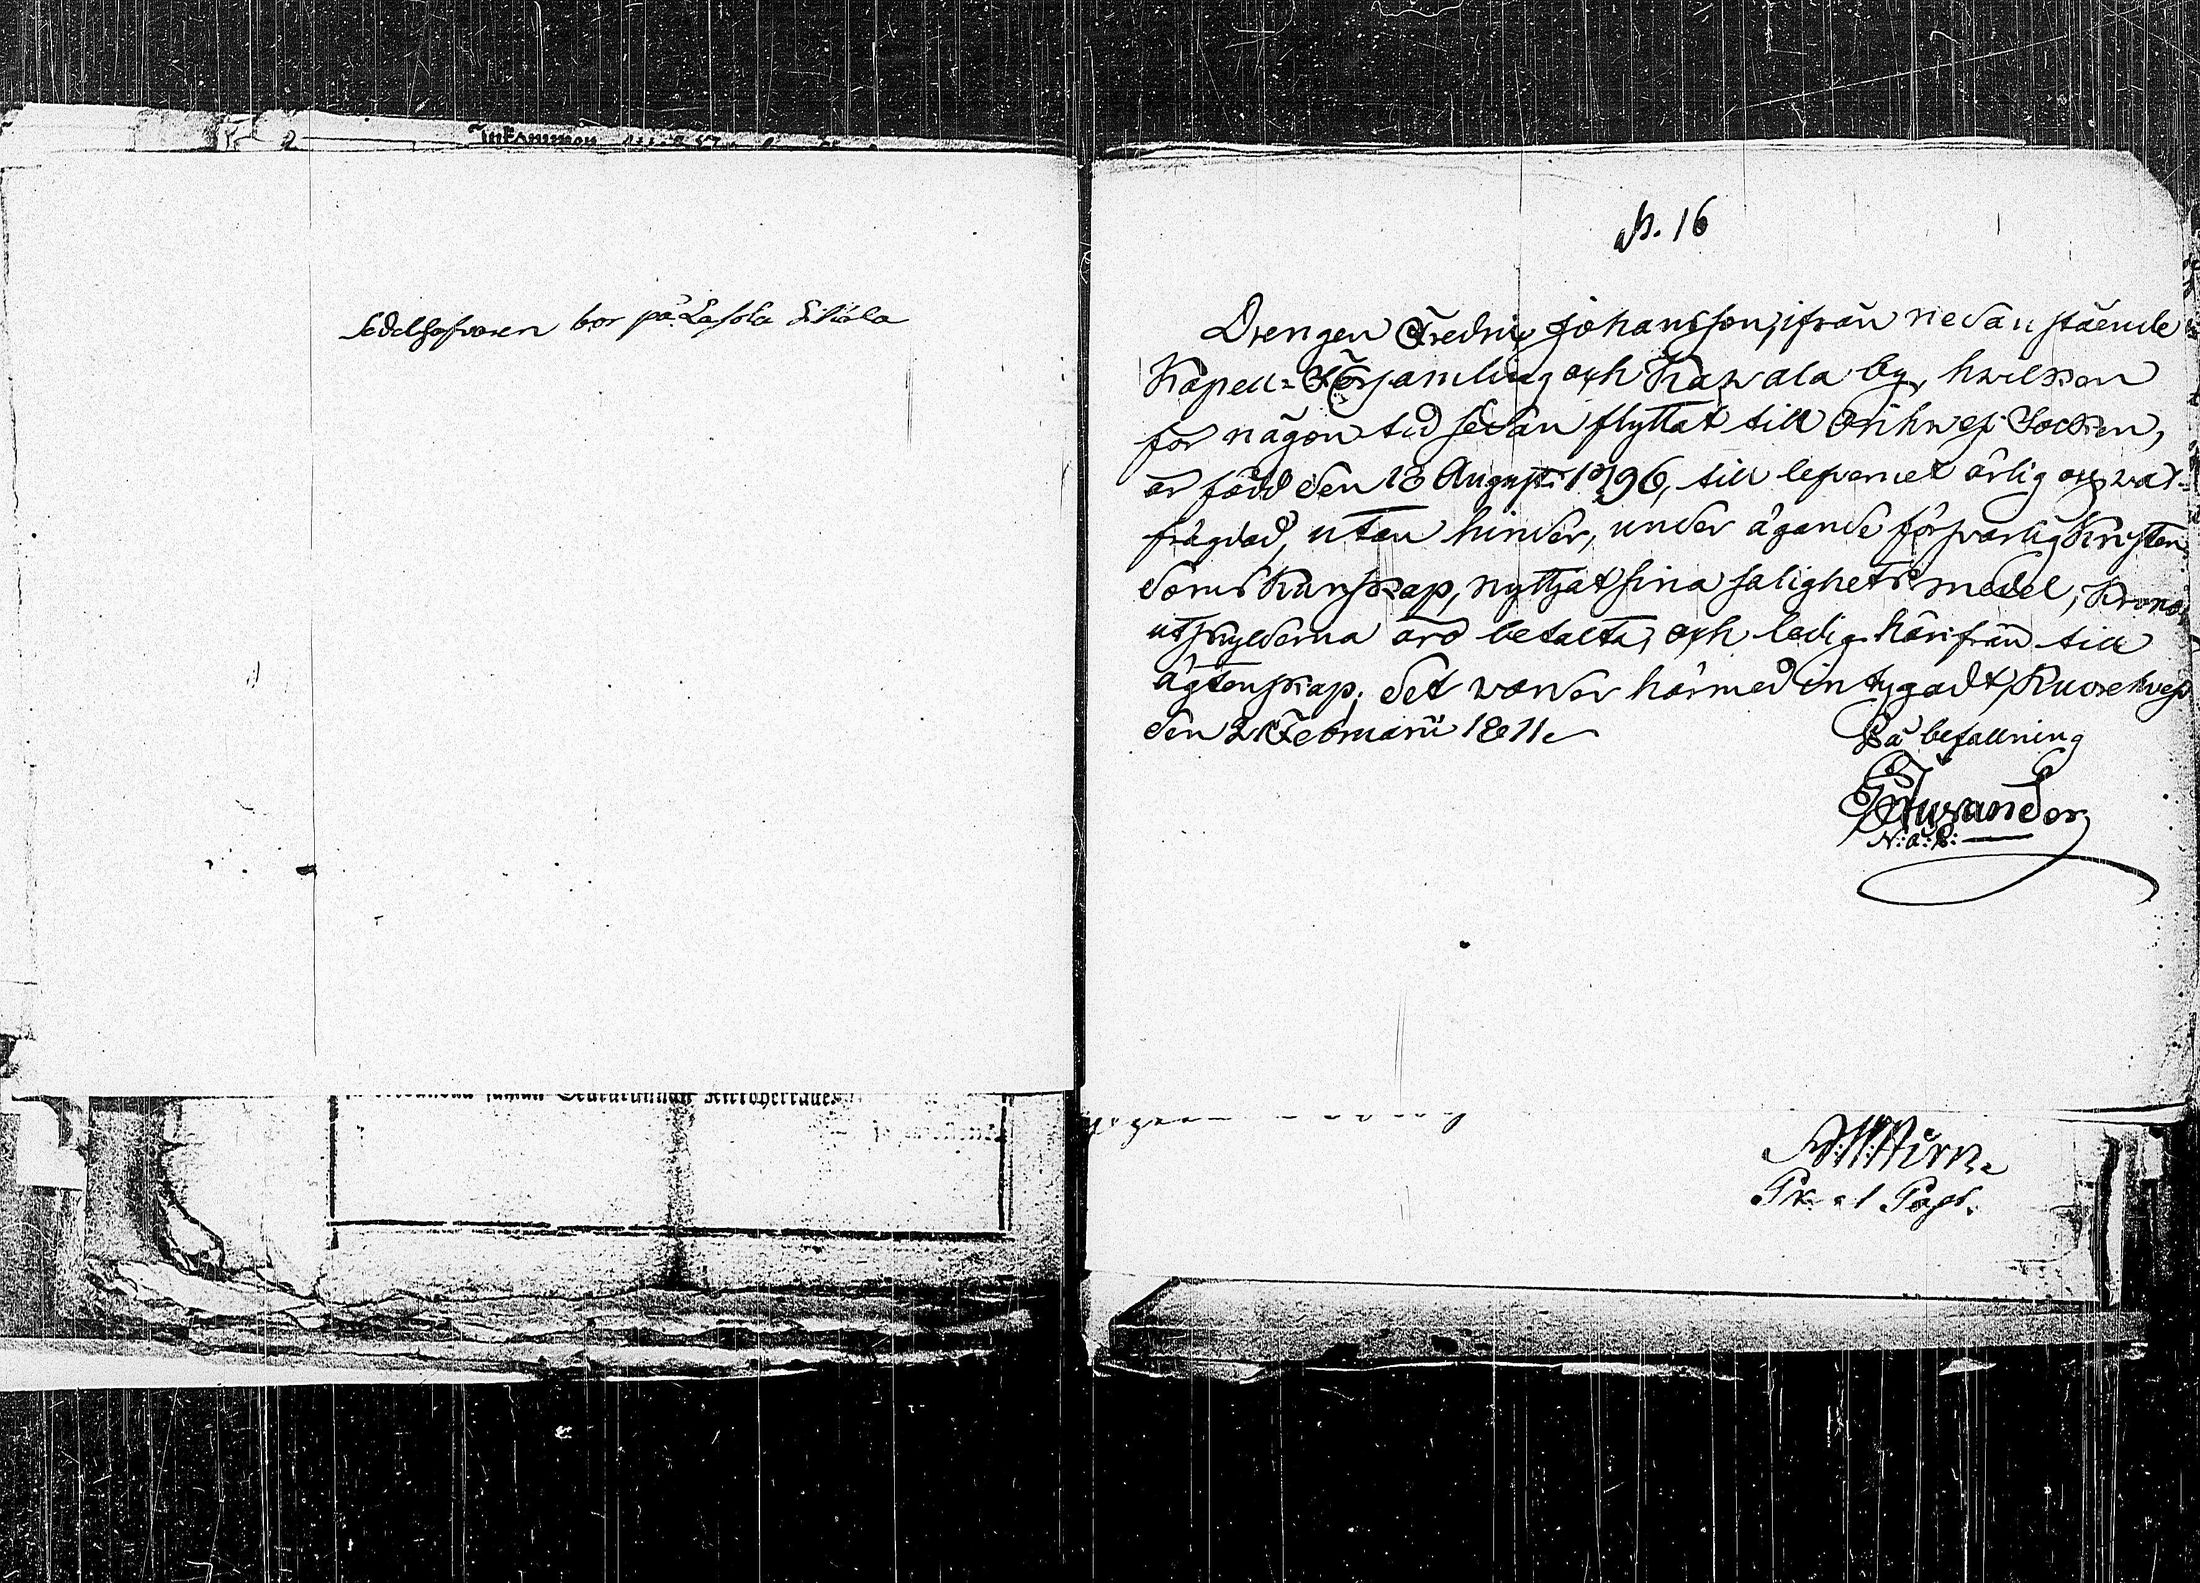 Sedelhafvaren bor på
N. 16
Drengen Fredric Johansson, ifrån nedanstående
Kapell-Församling och Kawala by, hvilken
för någon tid sedan flyttat till Orihwesi Socken,
är född den 18 Augusti 1796, till lefvernet ärlig och wäl-
frägdad, utan hinder, under ägande försvarlig Kristen-
doms Kunskap, nyttjat sina salighets medel, Krono
utskylderna äro betalta, och ledig härifrån till
ägtenskap; det warder härmed intygadt, Kuorehvesi
den 2 Februarii 1811.
På befallning
N: a: P:
Past.